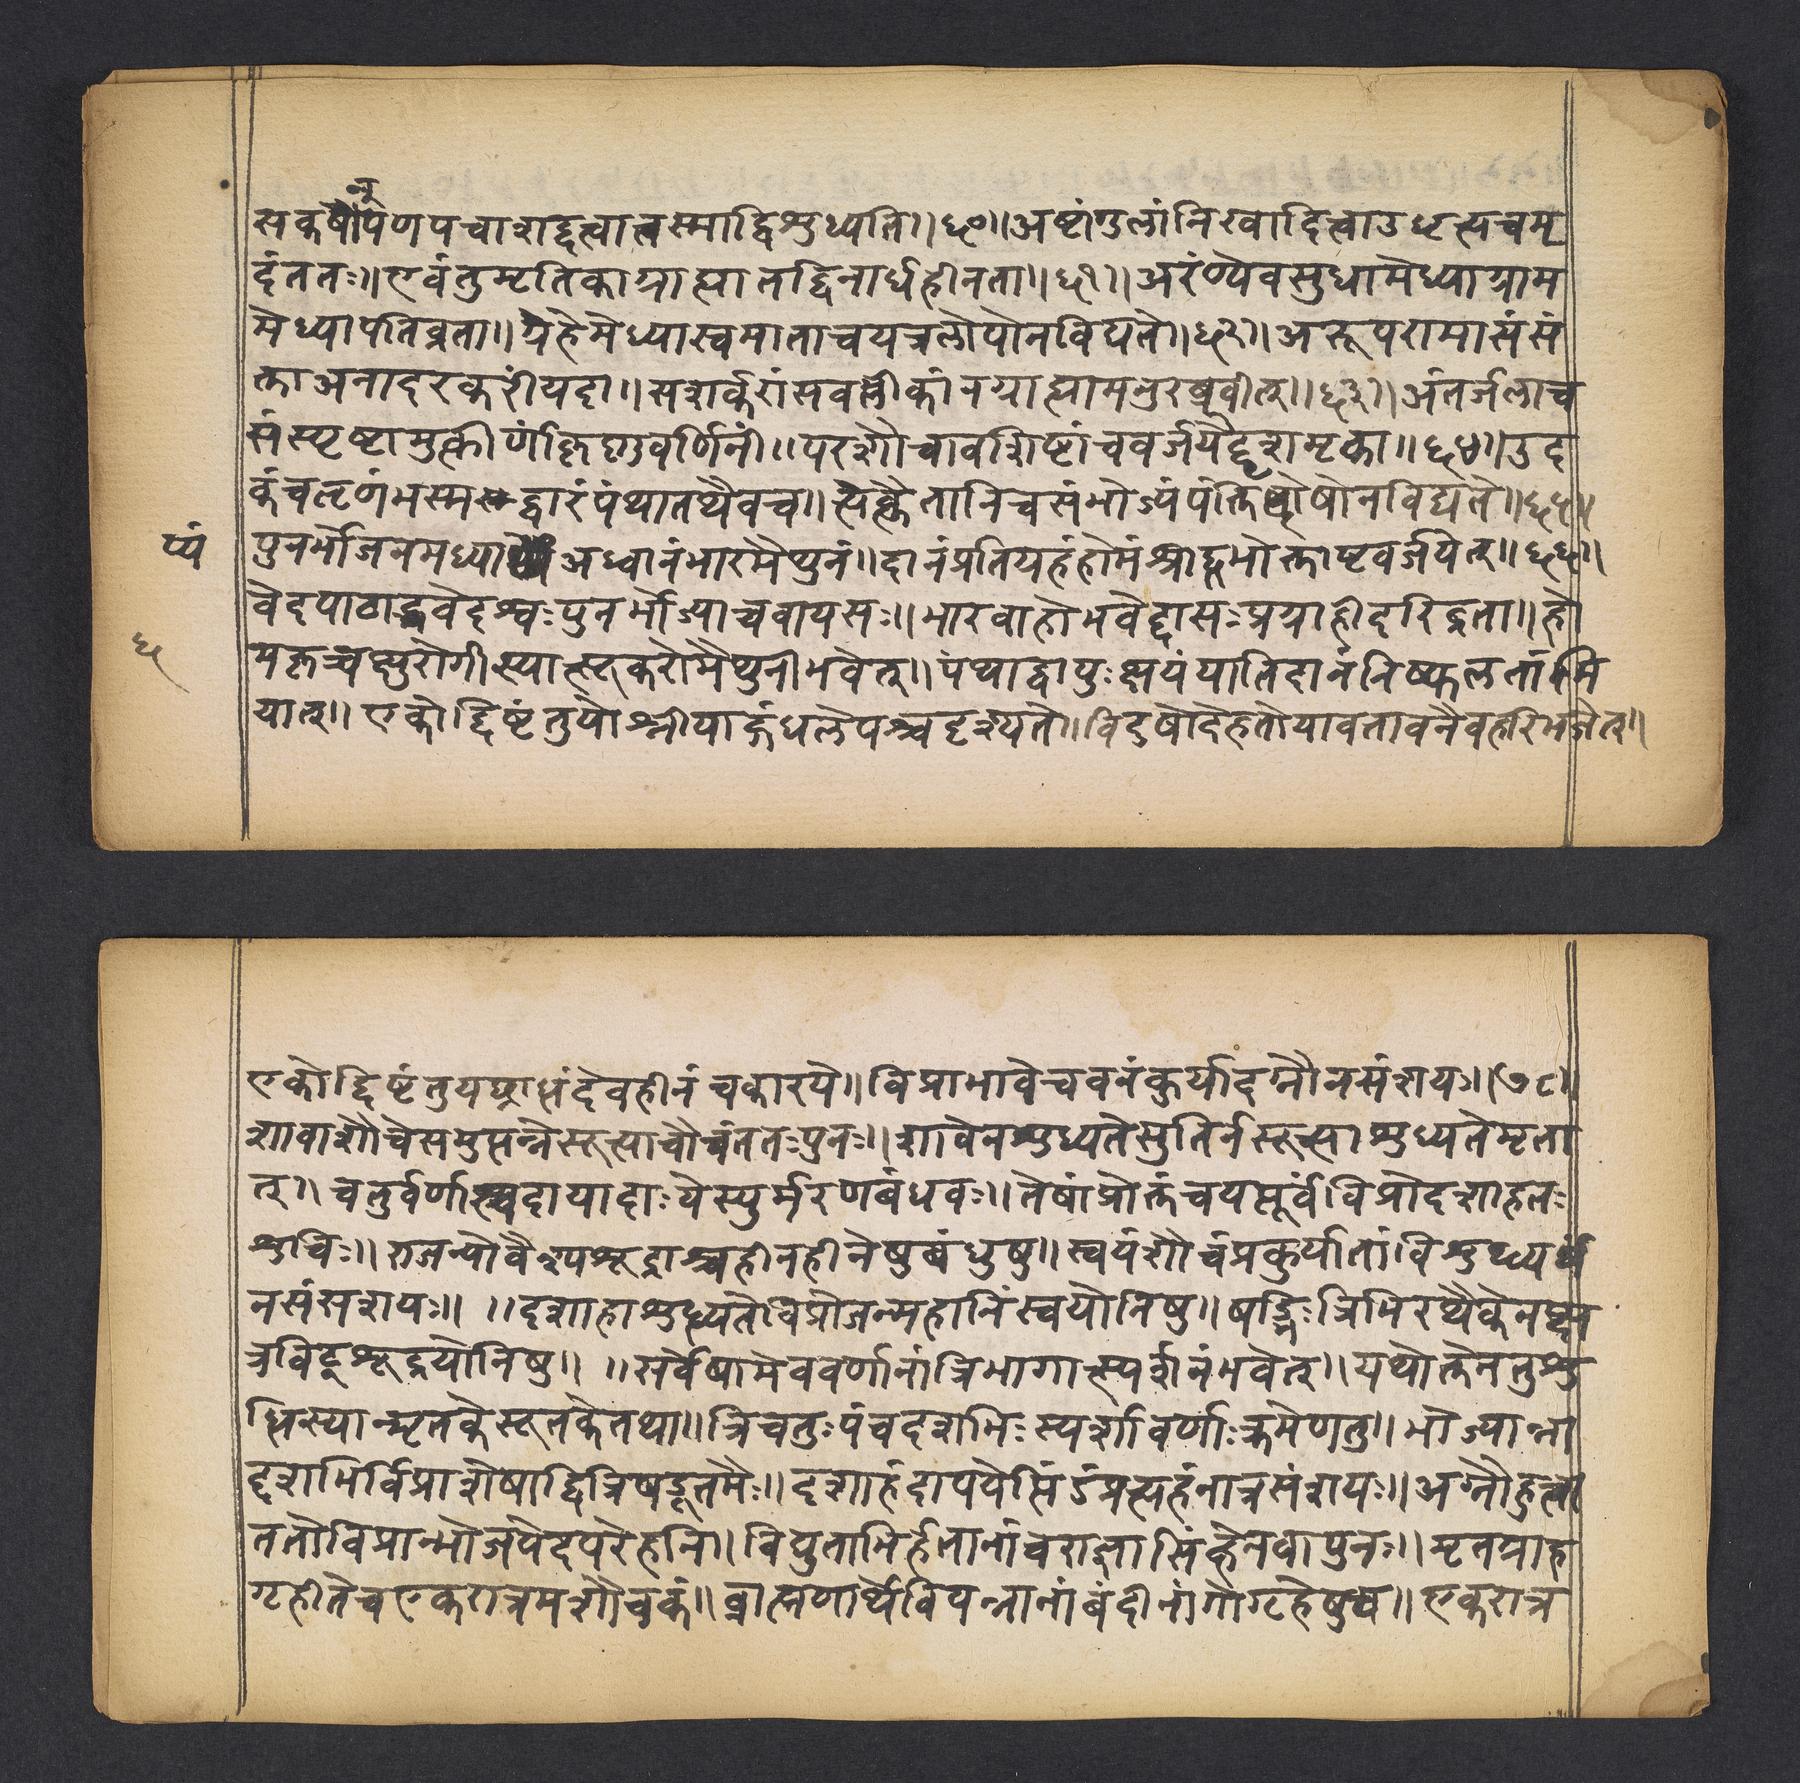 सकर्षापणपचाराद्दत्वातस्माद्विशुध्यति॥६०॥अष्टांगुलांनिखादित्वाउधृत्यचमृ
दंततः॥एवंतुमृतिकाग्राह्यातद्विनार्धहीनता॥६१॥अरंण्येवसुधामेध्याग्राम
मेध्यापतिव्रता॥गृहेमेध्यास्वमाताचयत्रलोपोनविद्यते॥६२॥अरूपरामासंसं
क्ताअनादरकरीयदा॥सशर्करांसवल्मीकांनग्राह्यामनुरब्रवीत्॥६३॥अंतर्जलाच
संस्पृष्टामुत्कीर्णं वर्णिनीं॥परशौचावशिष्टांचवर्जयेद्दशमृत्तका॥६४॥उद
कंचतृणंभस्म द्वारंपंथातथैवच॥ संभोज्यंपंक्ति षोनविद्यते॥६५॥
प्यं
पुनर्भोजनमध्या अध्वानंभारमैथुनं॥दानंप्रतिग्रहंहोमंश्राद्धभोक्ताष्टवर्जयेत्॥६६॥
वेदपाठाद्भवेदश्वःपुनर्भोज्याच्चवायसः॥भारवाहोभवेद्दासःप्रग्राहीदरिद्रता॥हो
६
यक्रच्चक्षुरोगीस्यात्सूकरोमैथुनीभवेत्॥पंथाद्वायुःक्षयंयातिदानंनिष्फलतांमि
यात्॥एकोद्दिष्टंतुयोश्नीयाद्गंधलेपश्चदृश्यते॥विदुषोदेहतोयावतावनैवहरिंभजेत्॥
एकोद्दिष्टंतुयच्छ्राद्धंदेवहीनंचकारये॥विप्राभावेचवनंकुर्यादग्नौनसंशयः॥७८॥
शावाशौचेसमुत्पन्नेसूत्याचौचंततःपुनः॥शावेनशुध्यतेसुतिर्नसूत्याशुध्यतेमृता
त्॥चतुर्वर्णाश्चदायादाःयेस्युर्मरणबंधवः॥तेषांप्रोक्तंचयत्पूर्वंविप्रोदशाहतः
शुचिः॥राजन्योवैश्यशूद्राश्चहीनहीनेषुबंधुषु॥स्वयंशौचंप्रकुर्यातांविशुध्यर्थं
नसंसशयः॥ ॥दशाहाशुद्ध्यतेविप्रोजन्महानिंस्वयोनिषु॥षड्भिःत्रिभिरथैकेनक्षत्र
त्रविट्शूद्रयोनिषु॥ ॥सर्वेषामेववर्णानांत्रिभागात्स्पर्शनंभवेत्॥यथोक्तेनतुशु
द्धिस्यान्मृतकेसूतकेतथा॥त्रिचतुःपंचदशभिःस्पर्शावर्णाःक्रमेणतु॥भोज्यान्ना
दशभिर्विप्राशेषाद्वित्रिषडूतमैः॥दशाहंदापयेत्पिंडंप्रत्यहंनात्रसंशयः॥अग्नौहुत्वा
ततोविप्रान्भोजयेदपरेहनि॥विद्युताभिर्हतानांचराज्ञासिंहेनवापुनः॥मृतग्राह
गृहीतेचएकरात्रमशौचकं॥ब्राह्मणार्थेविपन्नानांबंदीनांगोगृहेषुच॥एकरात्र